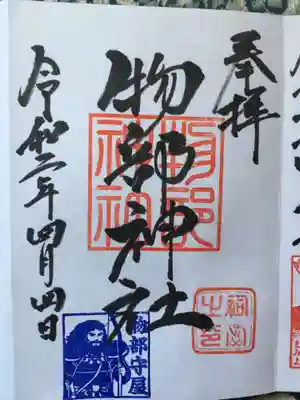 奉拝
物部神社
令和二年四月四日
物部
神社
物部守屋